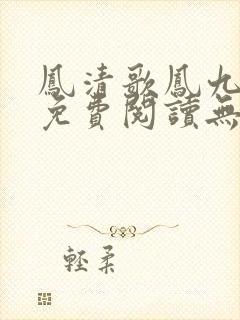 鳳清歌鳳九
免費閱讀無
輕柔